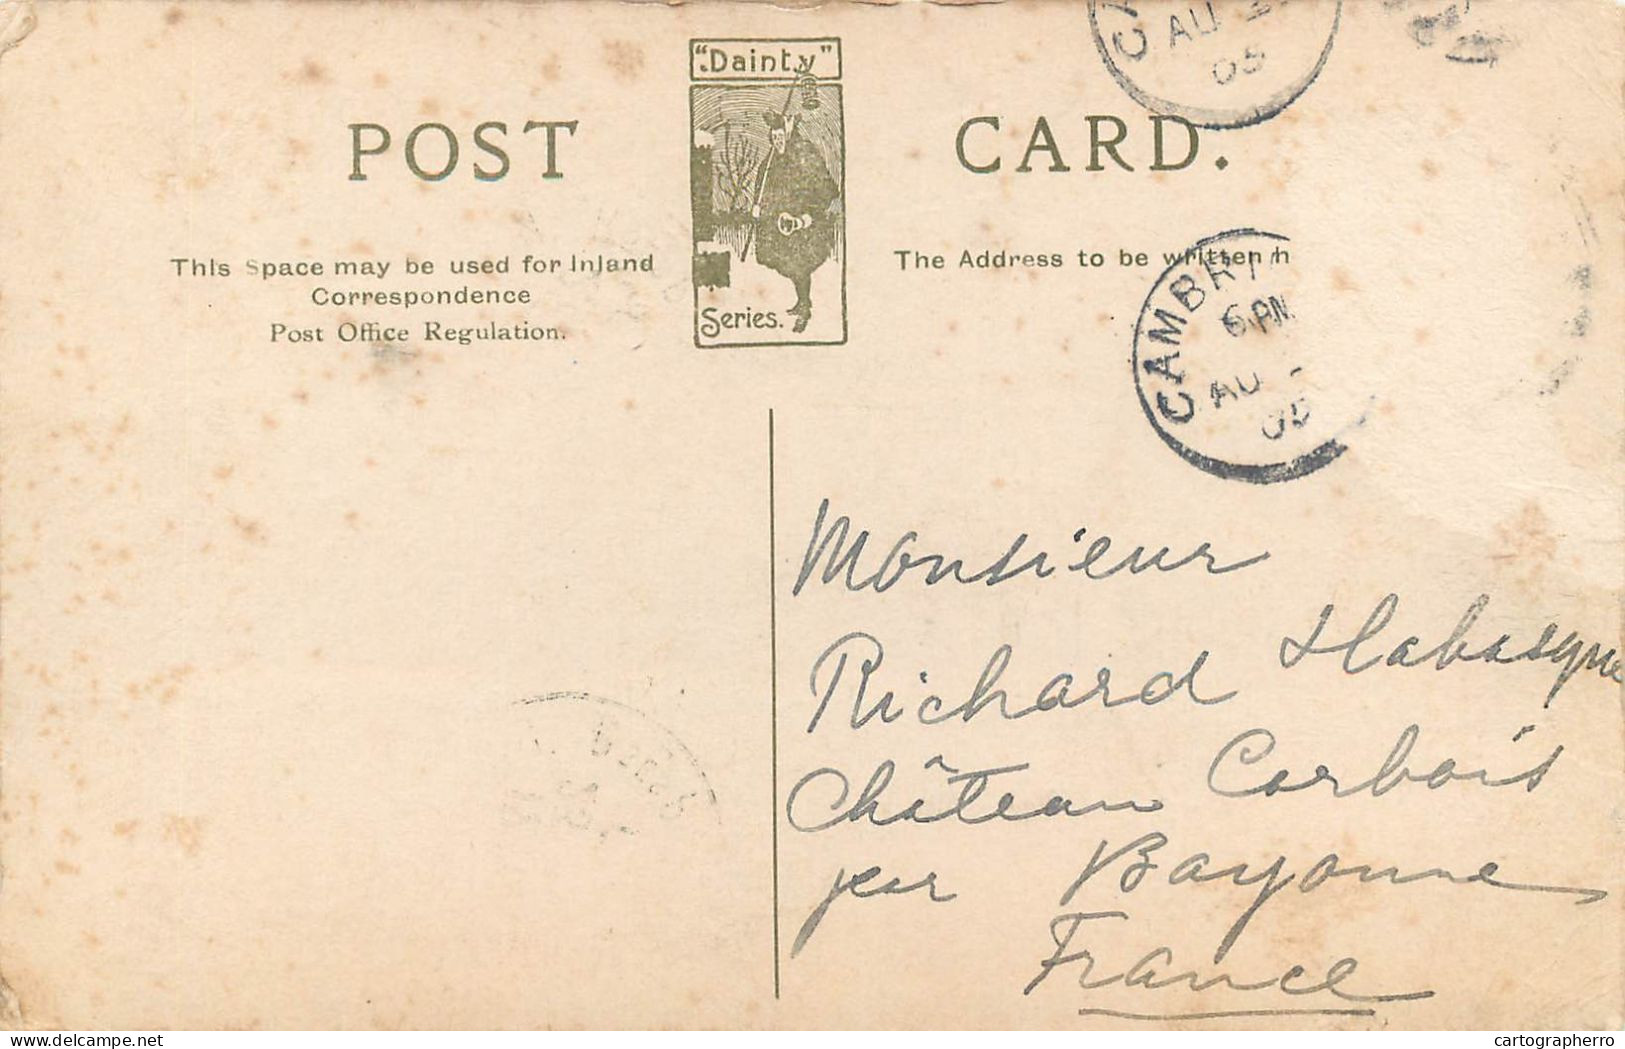 "Dainty"
Series.
POST CARD.
This Space may be used for Inland
Correspondence
Post Office Regulation.
The Address to be written h
AU
05
CAMBRI
6 PM
AU
05
Monsieur
Richard Habasque
Château Corbois
par Bayonne
France
delcampe.net
cartographerro